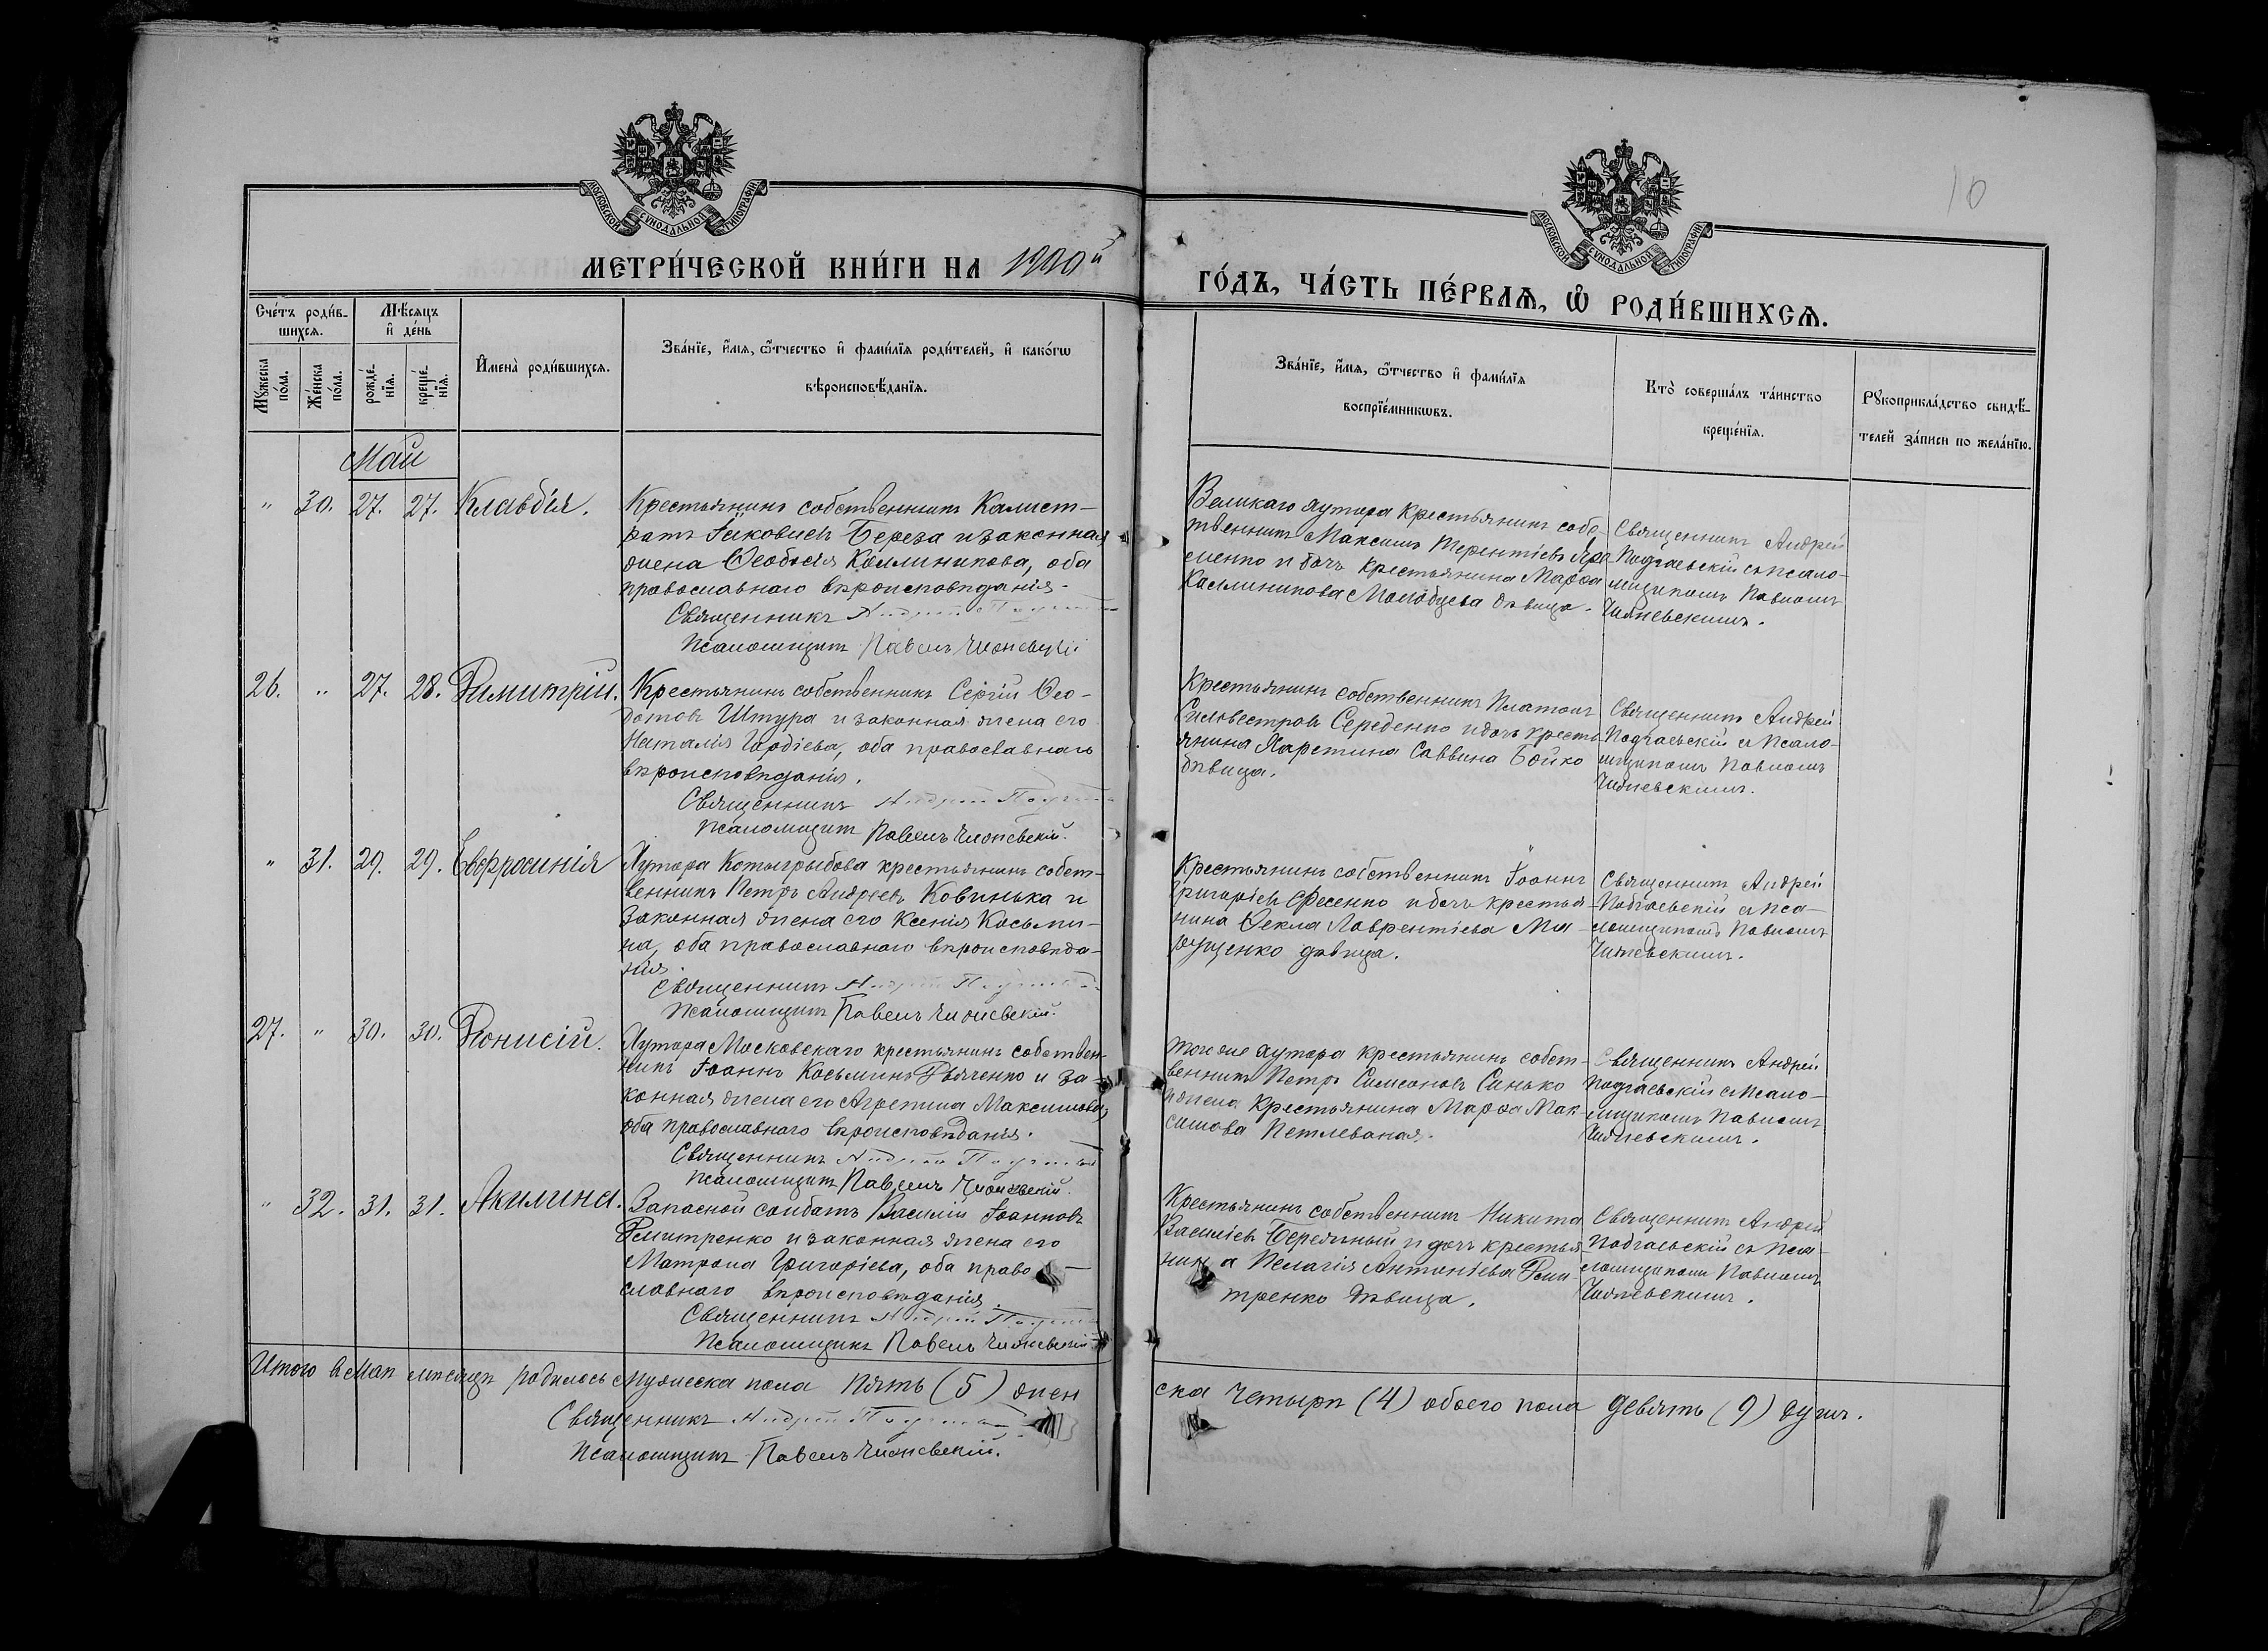 10
МОСКОВСКОЙ СѴНОДАЛЬНОЙ ТИПОГРАФІИ
МОСКОВСКОЙ СѴНОДАЛЬНОЙ ТИПОГРАФІИ
МЕТРИ́ЧЕСКОЙ КНИ́ГИ НА 1900й
ГО́ДЪ, ЧА́СТЬ ПЕ́РВАѦ, Ѽ РОДИ́ВШИХСѦ.
Сче́тъ роди́вшихся.
Мѣ́сяцъ и де́нь
Мꙋ́жеска по́ла.
Же́нска по́ла.
рожде́нїя.
креще́нїя.
И҆мена̀ роди́вшихся.
Зва́нїе, и҆́мя, ѻ҆́тчество и҆ фами́лїя роди́телей, и҆ како́гѡ
вѣроисповѣ́данїя.
Зва́нїе, и҆́мя, ѻ҆́тчество и҆ фами́лїя
воспрїе́мникѡвъ.
Кто̀ соверша́лъ та́инство
креще́нїя.
Рꙋкоприкла́дство свидѣ́-
телей за́писи по жела́нїю.
Май
" 30. 27. 27. Клавдія.
Крестьянинъ собственникъ Калист-
ратъ Іаковлевъ Береза и законная
жена Ѳеодосія Каллиникова, оба
православнаго вѣроисповѣданія.
Священникъ Андрей
Псаломщикъ Павелъ Чижевскій
Великаго хутора крестьянинъ собс-
твенникъ Максимъ Терентіевъ Яро-
менко и дочь крестьянина Марѳа
Каллиникова Молодцева дѣвица.
Священникъ Андрей
Подгаевскій съ псало-
мщикомъ Павломъ
Чижевскимъ.
26. " 27. 28. Димитрій.
Крестьянинъ собственникъ Сергій Ѳео-
дотовъ Штура и законная жена его
Наталія Гордіева, оба православнаго
вѣроисповѣданія.
Священникъ Андрей
Псаломщикъ Павелъ Чижевскій.
Крестьянинъ собственникъ Платонъ
Сильвестровъ Середенко и дочь кресть-
янина Харитина Саввина Бойко
дѣвица.
Священникъ Андрей
Подгаевскій съ псало-
мщикомъ Павломъ
Чижевскимъ.
" 31. 29. 29. Евфросинія
Хутора Котлярыбова крестьянинъ собст-
венникъ Петръ Андреевъ Ковинька и
законная жена его Ксенія Косьми-
на, оба православнаго вѣроисповѣда-
нія.
Священникъ Андрей
Псаломщикъ Павелъ Чижевскій.
Крестьянинъ собственникъ Іоаннъ
Григоріевъ Фесенко и дочь крестья-
нина Ѳекла Лаврентіева Ми-
щенко дѣвица.
Священникъ Андрей
Подгаевскій съ пса-
ломщикомъ Павломъ
Чижевскимъ.
27. " 30. 30. Діонисій.
Хутора Московскаго крестьянинъ собствен-
никъ Іоаннъ Косьминъ Дьяченко и за-
конная жена его Агрепина Максимова,
оба православнаго вѣроисповѣданія.
Священникъ Андрей
Псаломщикъ Павелъ Чижевскій.
Того же хутора крестьянинъ собст-
венникъ Петръ Симеоновъ Синько
и жена крестьянина Марѳа Мак-
симова Петлеваная.
Священникъ Андрей
Подгаевскій съ псало-
мщикомъ Павломъ
Чижевскимъ.
" 32. 31. 31. Акилина.
Запасной солдатъ Василій Іоанновъ
Демитренко и законная жена его
Матрона Григоріева, оба право-
славнаго вѣроисповѣданія.
Священникъ Андрей
Псаломщикъ Павелъ Чижевскій
Крестьянинъ собственникъ Никита
Василіевъ Березный и дочь крестья-
нина Пелагія Антоніева Деми-
тренко дѣвица.
Священникъ Андрей
Подгаевскій съ пса-
ломщикомъ Павломъ
Чижевскимъ.
Итого въ Маѣ мѣсяцѣ родилось мужеска пола пять (5) жен
ска четыре (4) обоего пола девять (9) душъ.
Священникъ Андрей
Псаломщикъ Павелъ Чижевскій.